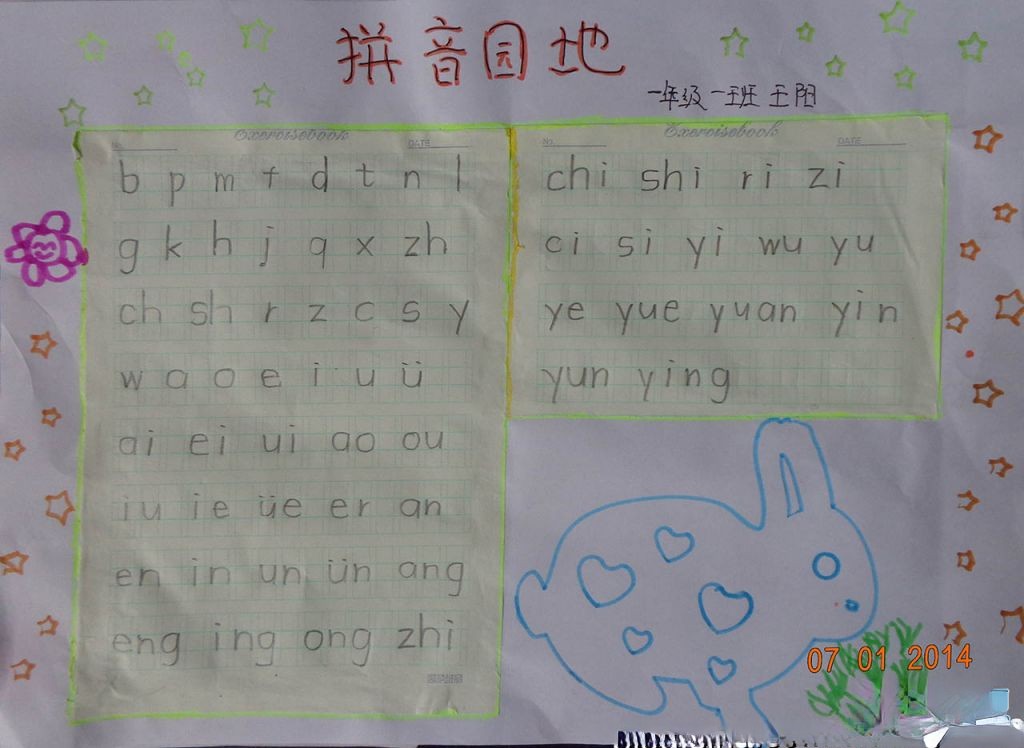 拼音园地
一年级一班 王阳
Exercisebook
No. DATE
b p m f d t n l
g k h j q x zh
ch sh r z c s y
w a o e i u ü
ai ei ui ao ou
iu ie üe er an
en in un ün ang
eng ing ong zhi
Exercisebook
No. DATE
chi shi ri zi
ci si yi wu yu
ye yue yuan yin
yun ying
07 01 2014